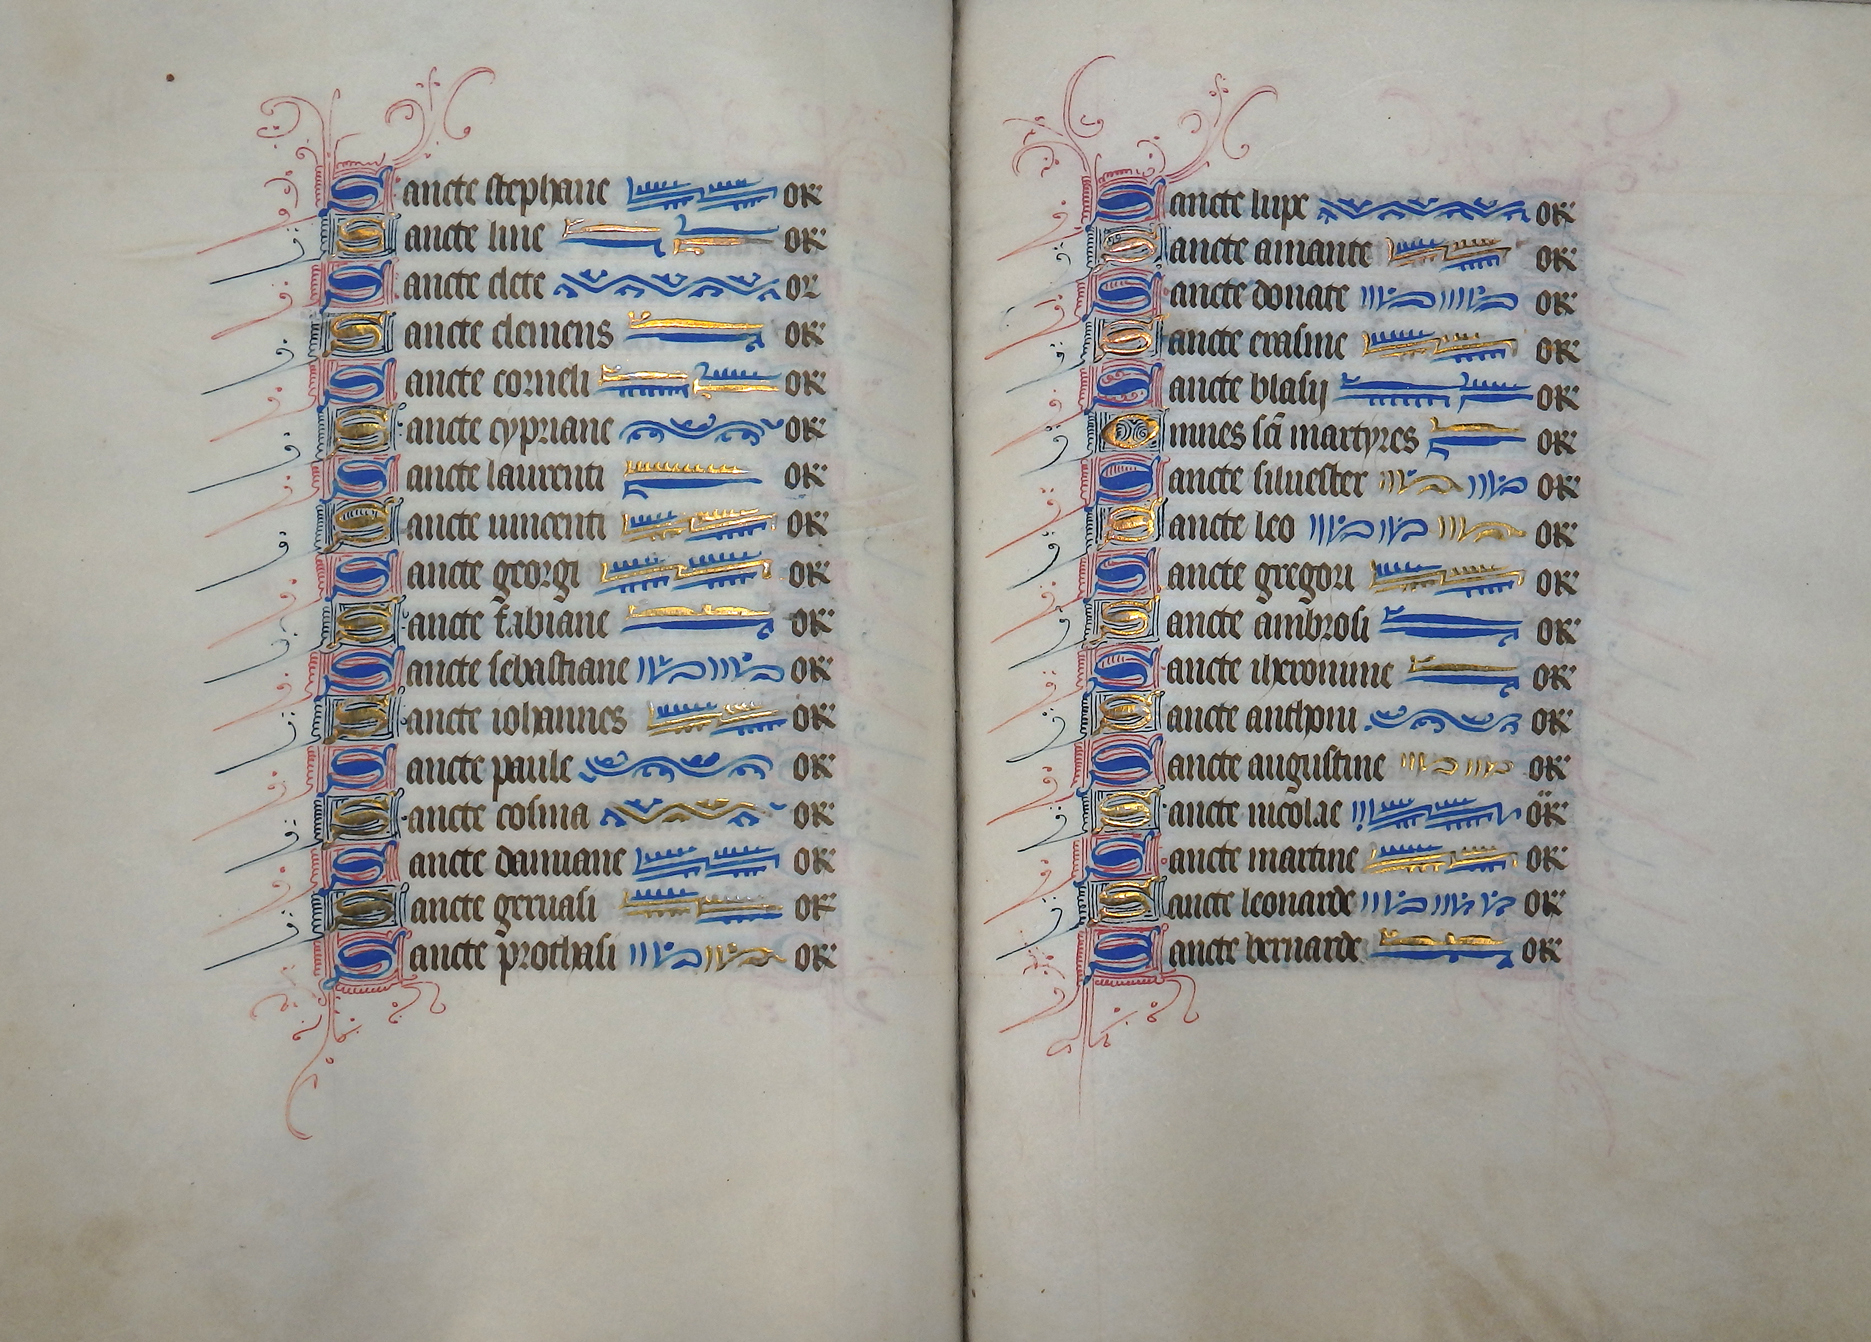 Sancte stephane or
Sancte line or
Sancte clete or
Sancte clemens or
Sancte corneli or
Sancte cypriane or
Sancte laurenti or
Sancte vincenti or
Sancte georgi or
Sancte fabiane or
Sancte sebastiane or
Sancte iohannes or
Sancte paule or
Sancte cosma or
Sancte damiane or
Sancte geruasi or
Sancte prothasi or
Sancte lupe or
Sancte amante or
Sancte donate or
Sancte erasme or
Sancte blasij or
Omnes sc̄i martyres or
Sancte siluester or
Sancte leo or
Sancte gregori or
Sancte ambrosi or
Sancte iheronime or
Sancte anthoni or
Sancte augustine or
Sancte nicolae or
Sancte martine or
Sancte leonarde or
Sancte bernarde or